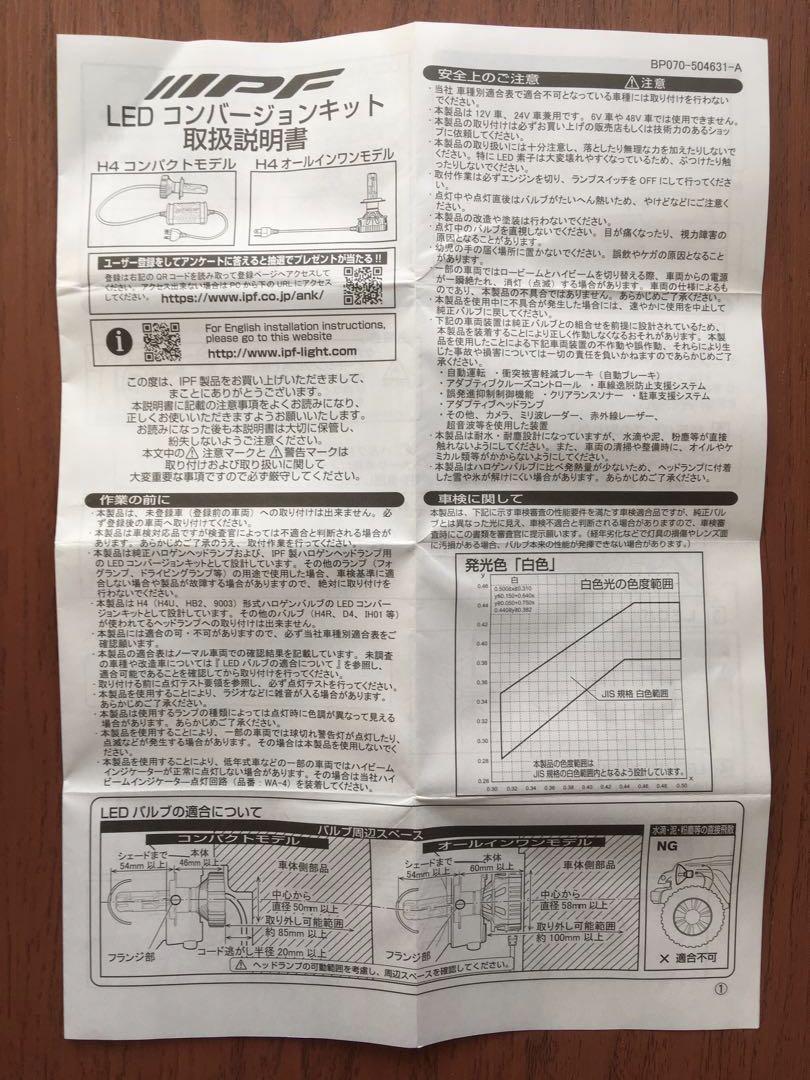 IPF
LED コンバージョンキット
取扱説明書
H4 コンパクトモデル
H4 オールインワンモデル
ユーザー登録をしてアンケートに答えると抽選でプレゼントが当たる!!
登録は右記の QR コードを読み取って登録ページへアクセスして
ください。アクセス出来ない場合は PC から下の URL にアクセス
してください。 https://www.ipf.co.jp/ank/
For English installation instructions,
please go to this website
http://www.ipf-light.com
この度は、IPF 製品をお買い上げいただきまして、
まことにありがとうございます。
本説明書に記載の注意事項をよくお読みになり、
正しくお使いいただきますようお願いいたします。
お読みになった後も本説明書は大切に保管し、
紛失しないようご注意ください。
本文中の⚠ 注意マークと⚠ 警告マークは
取り付けおよび取り扱いに関して
大変重要な事項ですので必ず厳守してください。
作業の前に
・本製品は、未登録車（登録前の車両）への取り付けは出来ません。必
ず登録後の車両へ取り付けてください。
・本製品は車検対応品ですが検査官によっては不適合と判断される場合が
あります。あらかじめご了承のうえ、取付作業を行ってください。
・本製品は純正ハロゲンヘッドランプおよび、IPF 製ハロゲンヘッドランプ用
の LED コンバージョンキットとして設計しています。その他のランプ（フォ
グランプ、ドライビングランプ等）の用途で使用した場合、車検基準に適
合しない場合や製品が故障する場合がありますので、絶対に取り付けを
行わないでください。
・本製品は H4（H4U、HB2、9003）形式ハロゲンバルブの LED コンバー
ジョンキットとして設計しています。その他のバルブ（H4R、D4、IH01 等）
が使われてるヘッドランプへの取り付けは出来ません。
・本製品には適合の可・不可がありますので、必ず当社車種別適合表をご
確認願います。
・本製品の適合表はノーマル車両での確認結果を記載しています。未調査
の車種や改造車については『 LED バルブの適合について 』を参照し、
適合可能であることを確認してから取付を行ってください。
・取り付ける前に点灯テスト要領を参照し、必ず点灯テストを行ってください。
・本製品を使用することにより、ラジオなどに雑音が入る場合があります。
あらかじめご了承ください。
・本製品は使用するランプの種類によっては点灯時に色調が異なって見える
場合があります。あらかじめご了承ください。
・本製品を使用することにより、一部の車両では球切れ警告灯が点灯したり、
点滅などが発生する場合があります。その場合は本製品を使用しないでく
ださい。
・本製品を使用することにより、低年式車などの一部の車両ではハイビーム
インジケーターが正常に点灯しない場合があります。その場合は当社ハイ
ビームインジケーター点灯回路（品番：WA-4）を装着してください。
BP070-504631-A
安全上のご注意 ⚠注意
・当社 車種別適合表で適合不可となっている車種には取り付けを行わない
でください。
・本製品は 12V 車、24V 車兼用です。6V 車や 48V 車では使用できません。
・本製品の取り付けは必ずお買い上げの販売店もしくは技術力のあるショッ
プに依頼してください。
・本製品の取り扱いには十分注意し、落としたり無理な力を加えたりしないで
ください。特に LED 素子は大変壊れやすくなっているため、ぶつけたり触
ったりしないでください。
・取付作業は必ずエンジンを切り、ランプスイッチを OFF にして行ってくださ
い。
・点灯中や点灯直後はバルブがたいへん熱いため、やけどなどにご注意く
ださい。
・本製品の改造や塗装は行わないでください。
・点灯中のバルブを直視しないでください。目が痛くなったり、視力障害の
原因となることがあります。
・幼児の手の届く場所に置かないでください。誤飲やケガの原因となること
があります。
・一部の車両ではロービームとハイビームを切り替える際、車両からの電源
が一瞬絶たれ、消灯（点滅）する場合があります。車両の仕様によるも
のであり、本製品の不具合ではありません。あらかじめご了承ください。
・本製品を使用中に不具合が発生した場合には、速やかに使用を中止して
純正バルブに戻してください。
・下記の車両装置は純正バルブとの組合せを前提に設計されているため、
本製品を装着することにより正しく作動しなくなるおそれがあります。本製
品を使用したことによる下記車両装置の不作動や誤作動、それらにより生
じた事故や損害については一切の責任を負いかねますのであらかじめご了
承ください。
・自動運転 ・衝突被害軽減ブレーキ（自動ブレーキ）
・アダプティブクルーズコントロール ・車線逸脱防止支援システム
・誤発進抑制制御機能 ・クリアランスソナー ・駐車支援システム
・アダプティブヘッドランプ
・その他、カメラ、ミリ波レーダー、赤外線レーザー、
超音波等を使用した装置
・本製品は耐水・耐塵設計になっていますが、水滴や泥、粉塵等が直接
触れないようにしてください。また、車両の清掃や整備時に、オイルやケ
ミカル類等がかからないようにしてください。
・本製品はハロゲンバルブに比べ発熱量が少ないため、ヘッドランプに付着
した雪や氷が解けにくい場合があります。あらかじめご了承ください。
車検に関して
本製品は、下記に示す車検審査の性能要件を満たす車検適合品ですが、純正バル
ブとは異なった光に見え、車検不適合と判断される場合がありますので、車検審
査時にこの書類を審査官に提示願います。（経年劣化などで灯具の損傷やレンズ面
に汚損がある場合、バルブ本来の性能が発揮できない場合があります。）
発光色「白色」
y
白
0.500≧x≧0.310
y≦0.150+0.640x
y≧0.050+0.750x
0.440≧y≧0.382
白色光の色度範囲
0.46
0.44
0.42
0.40
0.38
0.36
0.34
0.32
0.30
0.28
0.26
JIS 規格 白色範囲
本製品の色度範囲は
JIS 規格の白色範囲内となるよう設計しています。
x
0.30 0.32 0.34 0.36 0.38 0.40 0.42 0.44 0.46 0.48 0.50
LED バルブの適合について
バルブ周辺スペース
コンパクトモデル
シェードまで
54mm 以上
本体
46mm 以上
車体側部品
中心から
直径 50mm 以上
取り外し可能範囲
約 85mm 以上
フランジ部
コード逃がし半径 20mm 以上
オールインワンモデル
シェードまで
54mm 以上
本体
60mm 以上
車体側部品
中心から
直径 58mm 以上
取り外し可能範囲
約 100mm 以上
フランジ部
⚠ ヘッドランプの可動範囲を考慮し、周辺スペースを確認してください。
水滴・泥・粉塵等の直接飛散
NG
× 適合不可
①